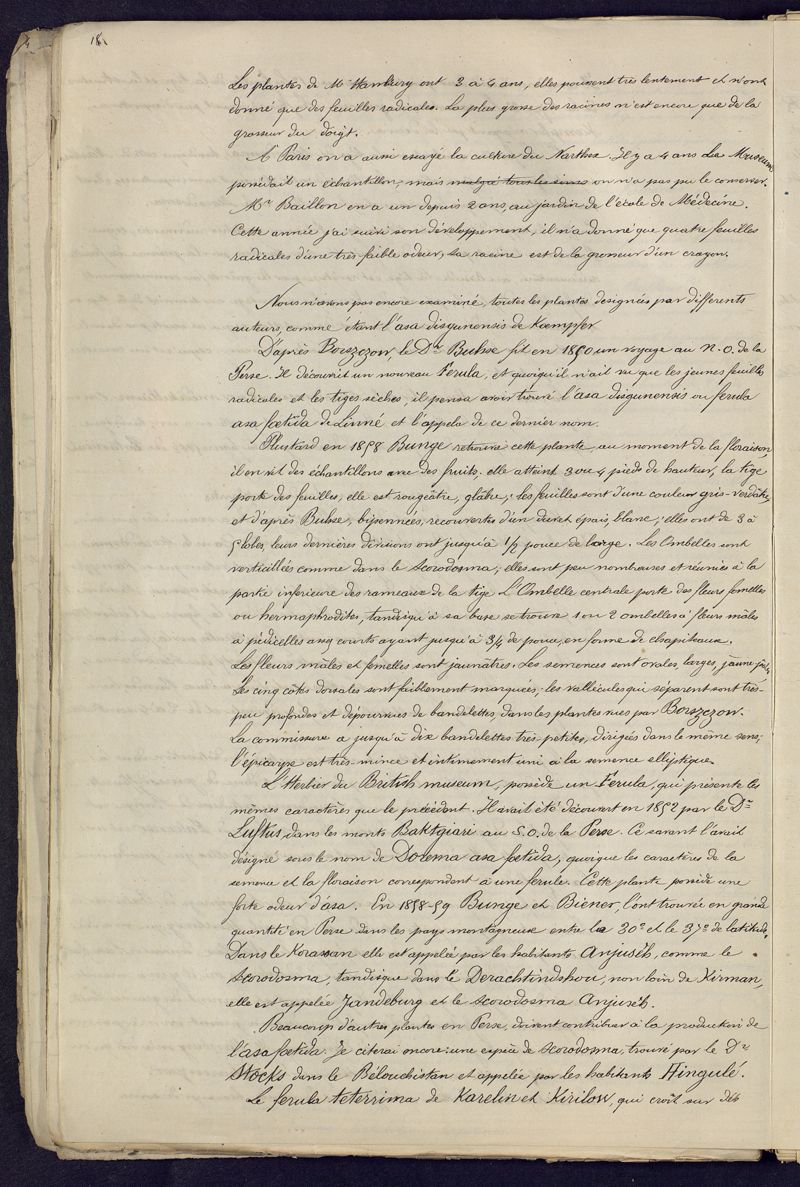 18
Les plantes de Mr Hanbury ont 2 à 4 ans, elles poussent très lentement et n'ont
donné que des feuilles radicales. La plus grosse des racines n'est encore que de la
grosseur du doigt.
A Paris on a aussi essayé la culture du Narthex. Il y a 4 ans Le Museum
possédait un échantillon, mais malgré tous les soins on n'a pas pu le conserver.
Mr Baillon en a un depuis 2 ans, au jardin de l'école de Médecine.
Cette année j'ai suivi son développement, il n'a donné que quatre feuilles
radicales d'une très faible odeur, sa racine est de la grosseur d'un crayon.
Nous n'avons pas encore examiné, toutes les plantes designées par differents
auteurs, comme étant l'asa disgunensis de Kaempfer
D'après Borszczow, le Dr Buhse fit en 1850 un voyage au N.O. de la
Perse. Il découvrit un nouveau Ferula, et quoiqu'il n'ait vu que les jeunes feuilles
radicales et les tiges sèches, il pensa avoir trouvé l'asa disgunensis ou ferula
asa fœtida de Linné et l'appela de ce dernier nom.
Plustard en 1858 Bunge retrouva cette plante, au moment de la floraison,
il en vit des échantillons avec des fruits. elle atteint 3 ou 4 pieds de hauteur, la tige
porte des feuilles, elle est rougeâtre, glabre; les feuilles sont d'une couleur gris-verdâtre,
et d'après Buhse, bipennées, recouvertes d'un duvet épais, blanc; elles ont de 3 à
5 lobes, leurs dernières divisions ont jusqu'à 1/2 pouce de large. Les Ombelles sont
verticillées comme dans le Scorodosma; elles sont peu nombreuses et réunies à la
partie inférieure des rameaux de la tige. L'Ombelle centrale porte des fleurs femelles
ou hermaphrodites, tandisqu'à sa base se trouve 1 ou 2 ombelles à fleurs mâles
à pédicelles assez courts ayant jusqu'à 3/4 de pouce, en forme de chapiteaux.
Les fleurs mâles et femelles sont jaunâtres. Les semences sont ovales, larges, jaune
Les cinq côtes dorsales sont faiblement marquées; les vallécules qui séparent sont très-
peu profondes et dépourvues de bandelettes, dans les plantes vues par Borszczow.
La commissure a jusqu'à dix bandelettes très-petites, dirigées dans le même sens;
l'épicarpe est très mince et intimement uni à la semence elliptique.
L'Herbier du British museum, possède un Ferula, qui présente les
mêmes caractères que le précédent. Il avait été découvert en 1852 par le Dr
Luftus, dans les monts Baktgiari au S.O. de la Perse. Ce savant l'avait
désigné sous le nom de Dorema asa fœtida, quoique les caractères de la
semence et la floraison correspondent à une ferule. Cette plante possède une
forte odeur d'asa. En 1858-59 Bunge et Biener l'ont trouvée en grande
quantité en Perse dans les pays montagneux entre le 30e et le 37e de latitude.
Dans le Korassan elle est appelée par les habitants Anjuséh, comme le
Scorodosma, tandisque dans le Derachtindshou, non loin de Kirman,
elle est appelée Jandeburg et le Scorodosma Anjuséh.
Beaucoup d'autres plantes en Perse, doivent contribuer à la production de
l'asa fœtida. Je citerai encore: une espèce de Scorodosma, trouvé par le Dr
Stocks dans le Bélouchistan et appelée par les habitants Hingulé.
Le ferula teterrima de Karelin et Kirilow, qui croît sur des